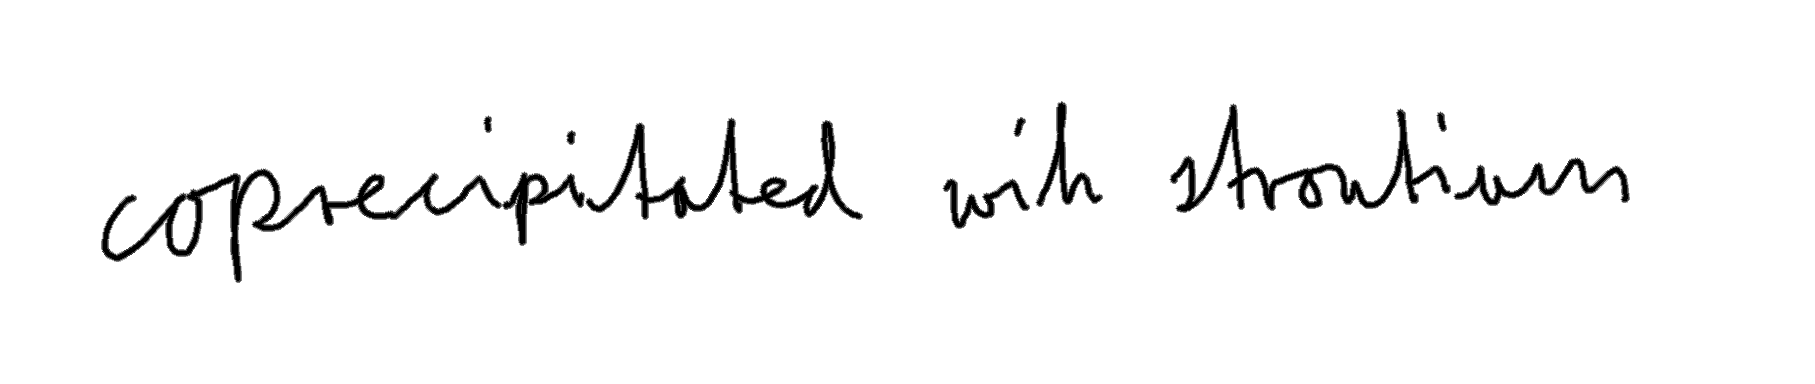 coprecipitated with strontium